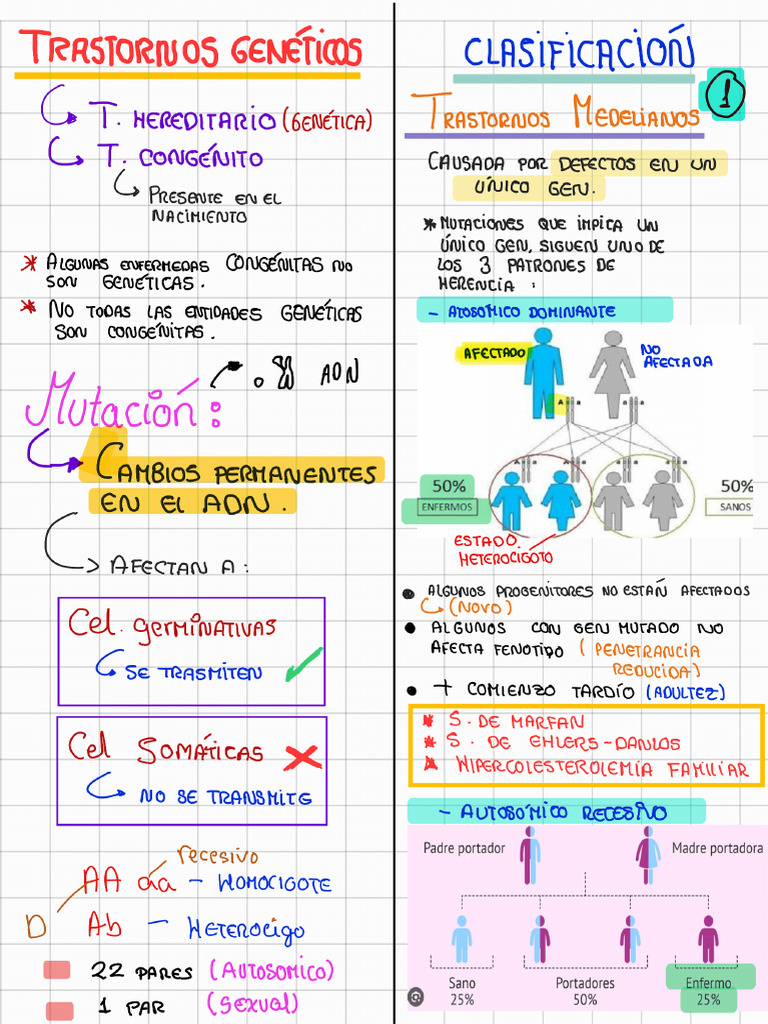 TRASTORNOS GENÉTICOS
T. HEREDITARIO (GENÉTICA)
T. CONGÉNITO
PRESENTE EN EL
NACIMIENTO
* ALGUNAS ENFERMEDAS CONGÉNITAS NO
SON GENÉTICAS.
* NO TODAS LAS ENTIDADES GENÉTICAS
SON CONGÉNITAS.
ADN
Mutación:
CAMBIOS PERMANENTES
EN EL ADN.
AFECTAN A:
Cel. GERMINATIVAS
SE TRASMITEN
Cel SOMÁTICAS
NO SE TRANSMITE
recesivo
AA aa - HOMOCIGOTE
D
Ab - HETEROCIGO
22 PARES (AUTOSOMICO)
1 PAR (SEXUAL)
CLASIFICACIÓN
1
TRASTORNOS MEDELIANOS
CAUSADA POR DEFECTOS EN UN
ÚNICO GEN.
* MUTACIONES QUE IMPICA UN
ÚNICO GEN, SIGUEN UNO DE
LOS 3 PATRONES DE
HERENCIA:
- ATOSÓMICO DOMINANTE
AFECTADO
NO
AFECTADA
A a
a a
A a
A a
a a
a a
50%
ENFERMOS
50%
SANOS
ESTADO
HETEROCIGOTO
• ALGUNOS PROGENITORES NO ESTAÑ AFECTADOS
(NOVO)
• ALGUNOS CON GEN MUTADO NO
AFECTA FENOTIPO (PENETRANCIA
REDUCIDA)
• + COMIENZO TARDÍO (ADULTEZ)
* S. DE MARFAN
* S. DE EHLERS-DANLOS
* HIPERCOLESTEROLEMIA FAMILIAR
- AUTOSÓMICO RECESIVO
Padre portador
Madre portadora
Sano
25%
Portadores
50%
Enfermo
25%